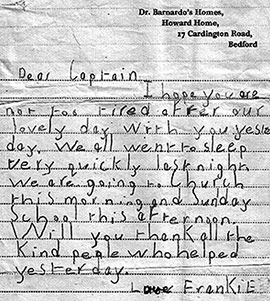 Dr. Barnardo's Homes,
Howard Home,
17 Cardington Road,
Bedford
Dear Captain
I hope you are
not too tired after our
lovely day with you yeste
day. We all went to sleep
very quickly last night.
We are going to church
this morning and Sunday
School this afternoon.
Will you thank all the
kind peple who helped
yesterday.
Love Frankie